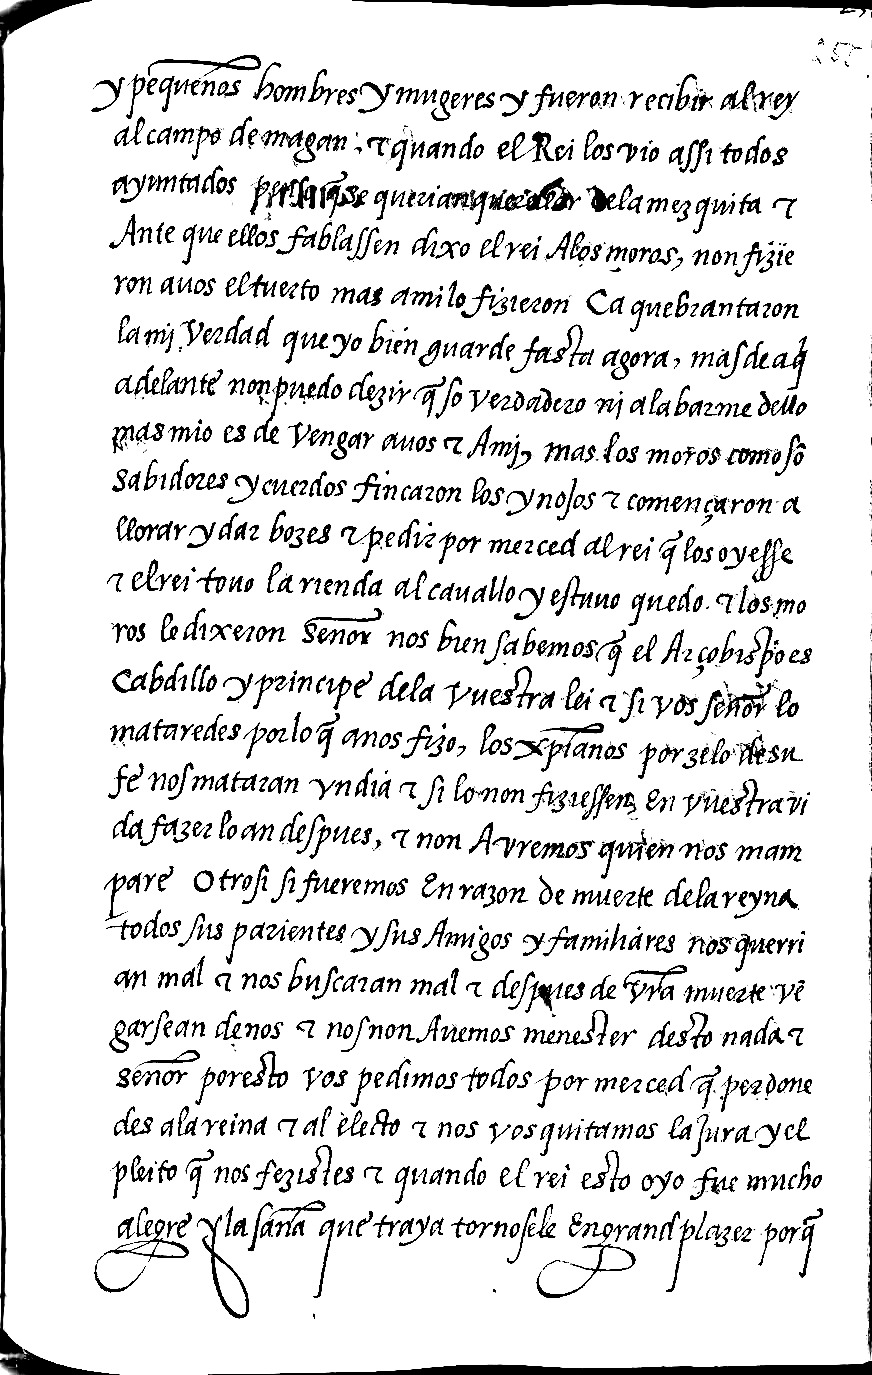 y pequenos hombres y mugeres y fueron recibir al rey
al campo de magan, ⁊ quando el Rei los vio assi todos
ayuntados q̃ se querian dela mezquita ⁊
Ante que ellos fablassen dixo el rei Alos moros, non fizie
ron avos el tuerto mas ami lo fizieron Ca quebrantaron
la mj Verdad que yo bien guarde fasta agora, mas de aq̃
adelante non puedo dezir q̃ so verdadero nj alabarme dello
mas mio es de Vengar avos ⁊ Amj, mas los moros como sõ
sabidores y cuerdos fincaron los ynojos ⁊ començaron a
llorar y dar bozes ⁊ pedir por merced al rei q̃ los oyesse
⁊ el rei tovo la rienda al cavallo y estuvo quedo. ⁊ los mo
ros le dixeron Señor nos bien sabemos q̃ el Arçobisp̃o es
Cabdillo y principe dela vuestra lei ⁊ si vos señor lo
mataredes por lo q̃ anos fizo, los xp̃ianos por zelo de su
fe nos mataran vn dia ⁊ si lo non fiziessen En vuestra vi
da fazer lo an despues, ⁊ non Avremos quien nos mam
pare Otrosi si fueremos En razon de muerte dela reyna
todos sus parientes y sus Amigos y familiares nos querri
an mal ⁊ nos buscaran mal ⁊ despues de vr̃a muerte vẽ
garsean denos ⁊ nos non Avemos menester desto nada ⁊
señor poresto vos pedimos todos por merced q̃ perdone
des ala reina ⁊ al electo ⁊ nos vos quitamos la Jura y el
pleito q̃ nos fezistes ⁊ quando el rei esto oyo fue mucho
alegre y la saña que traya tornosele En grand plazer porq̃